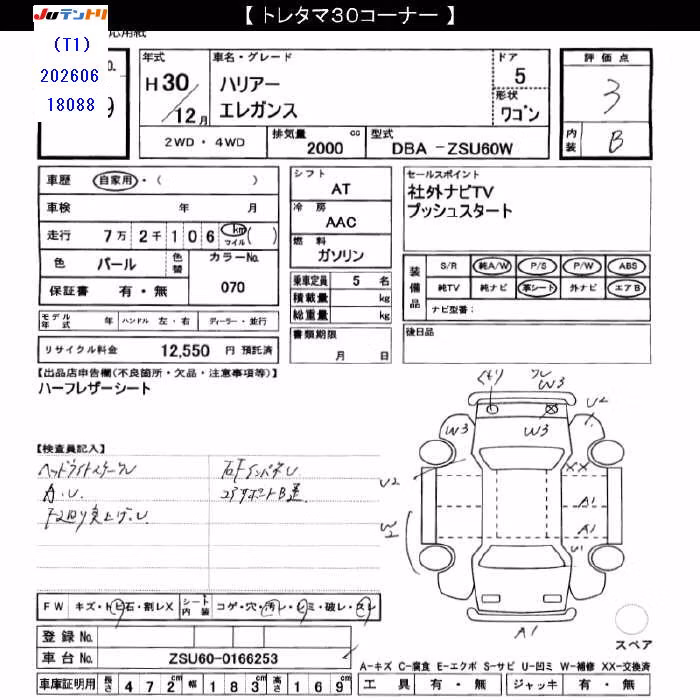 【 トレタマ30コーナー 】
JUテントリ
(T1)
202606
18088
年式
H30/12月
車名・グレード
ハリアー
エレガンス
ドア
5
形状
ワゴン
評価点
3
内装
B
2WD・4WD
排気量
2000
cc
型式
DBA -ZSU60W
車歴 自家用・( )
車検 年 月
走行 7万 2千 1 0 6 km マイル ( )
色 パール 色替 カラーNo. 070
保証書 有・無
モデル年式 年 ハンドル 左・右 ディーラー・並行
リサイクル料金 12,550 円 預託済
シフト
AT
冷房
AAC
燃料
ガソリン
乗車定員 5 名
積載量 kg
総重量 kg
書類期限
月 日
セールスポイント
社外ナビTV
プッシュスタート
装備品
S/R 純A/W P/S P/W ABS
純TV 純ナビ 革シート 外ナビ エアB
ナビ型番:
後日品
【出品店申告欄(不良箇所・欠品・注意事項等)】
ハーフレザーシート
【検査員記入】
W3
W3
W3
U2
U2
W2
XX
A1
A1
U1
A1
FW キズ・トビ石・割レX シート内装 コゲ・穴・汚レ・シミ・破レ・スレ
登録No.
車台No. ZSU60-0166253
スペア
A-キズ C-腐食 E-エクボ S-サビ U-凹ミ W-補修 XX-交換済
車庫証明用 長さ 4 7 2 cm 幅 1 8 3 cm 高さ 1 6 9 cm 工具 有・無 ジャッキ 有・無